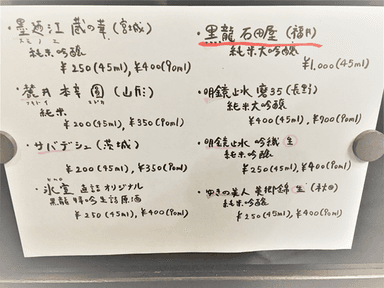 ・墨廼江 蔵の華 (宮城)
スミノエ
純米吟醸
¥250(45ml), ¥400(90ml)
純米
¥200(45ml), ¥350(90ml)
・サバデシュ (茨城)
¥200(45ml), ¥350(90ml)
・氷室 直詰 オリジナル
黒龍 吟醸 生詰原酒
¥250(45ml), ¥400(90ml)
・黒龍 石田屋 (福井)
純米大吟醸
¥1,000(45ml)
・明鏡止水 磨35 (長野)
純米大吟醸
¥400(45ml), ¥700(90ml)
・明鏡止水 吟織 生
純米吟醸
¥250(45ml), ¥400(90ml)
・ゆきの美人 美郷錦 生 (秋田)
純米吟醸
¥250(45ml), ¥400(90ml)